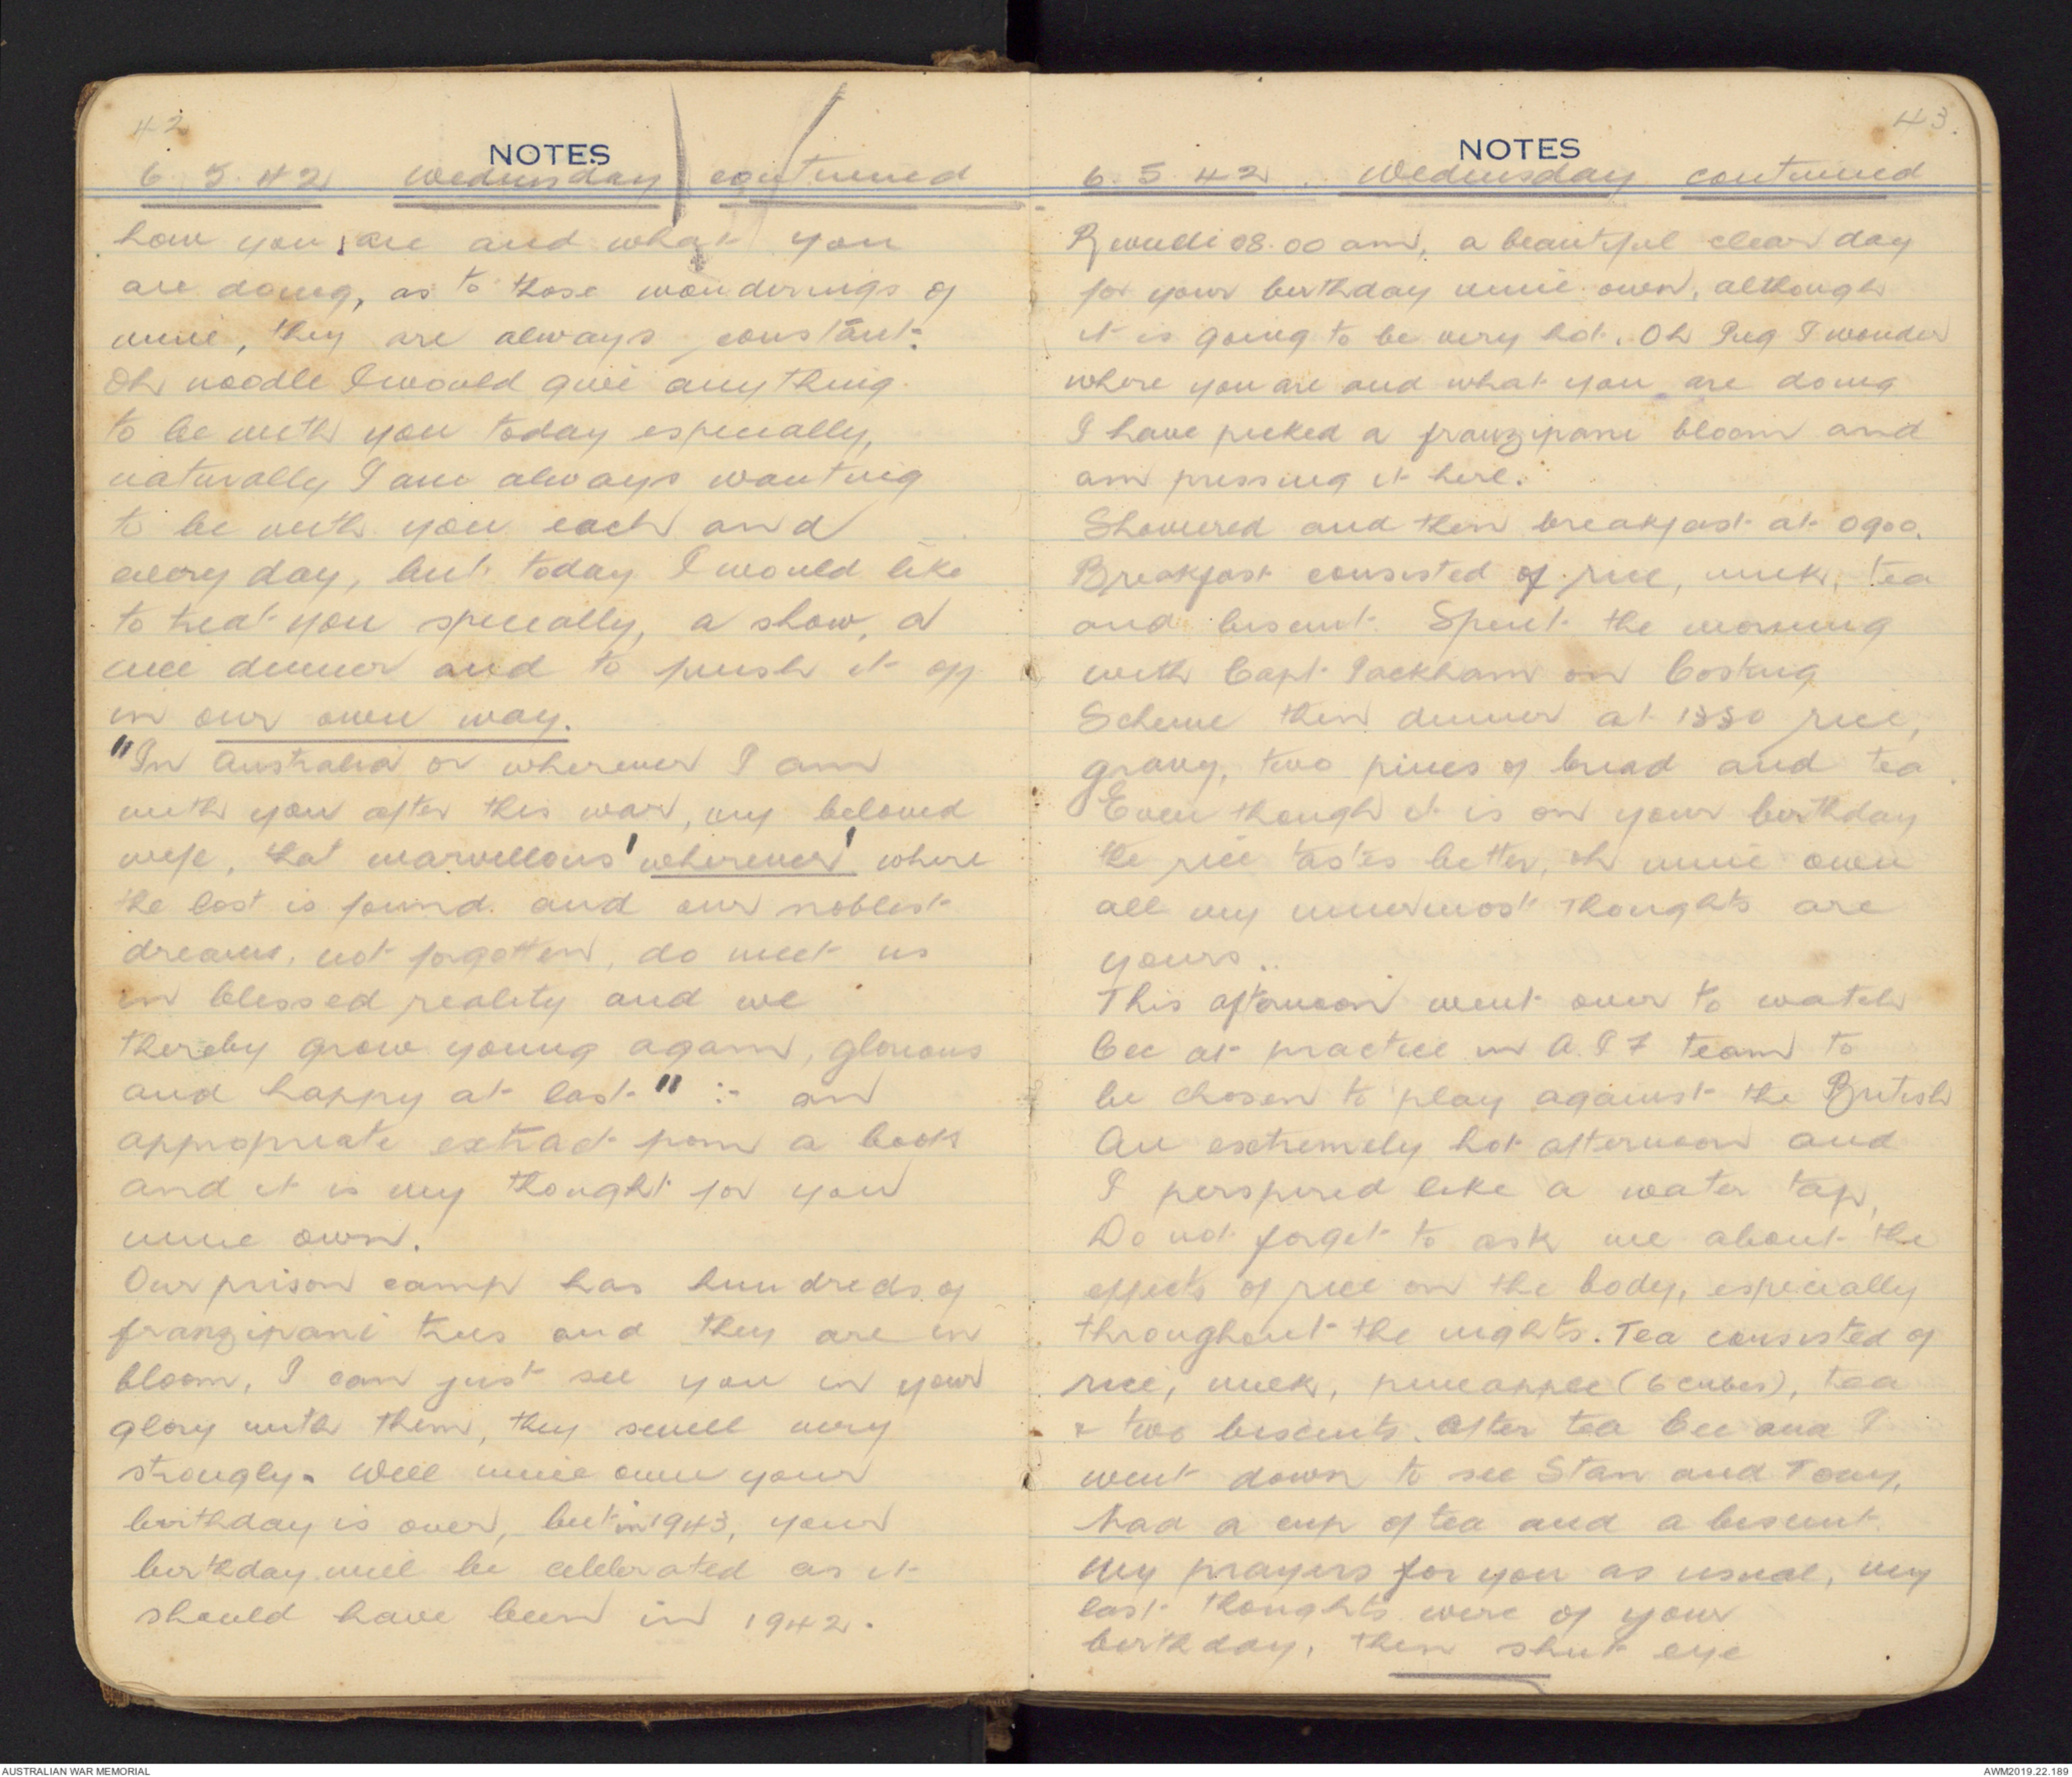 42
NOTES
6. 5. 42 Wednesday continued
how you are and what you
are doing, as to those wonderings of
mine, they are always constant.
Oh noodle I would give anything
to be with you today especially,
naturally I am always wanting
to be with you each and
every day, but today I would like
to treat you specially, a show, a
nice dinner and to finish it off
in our own way.
"In Australia or wherever I am
with you after this war, my beloved
wife, that marvellous 'wherever' where
the lost is found and our noblest
dreams, not forgotten, do meet us
in blessed reality and we
thereby grow young again, glorious
and happy at last" :- an
appropriate extract from a book
and it is my thought for you
mine own.
Our prison camp has hundreds of
frangipani trees and they are in
bloom, I can just see you in your
glory with them, they smell very
strongly. Well mine own your
birthday is over, but in 1943, your
birthday will be celebrated as it
should have been in 1942.
43.
NOTES
6. 5. 42. Wednesday continued
Reveille 08.00 am, a beautiful clear day
for your birthday mine own, although
it is going to be very hot. Oh Peg I wonder
where you are and what you are doing
I have picked a frangipani bloom and
am pressing it here.
Showered and then breakfast at 0900.
Breakfast consisted of rice, milk, tea
and biscuit. Spent the morning
with Capt. Packham on Costing
Scheme then dinner at 1330 rice,
gravy, two pieces of bread and tea.
Even though it is on your birthday
the rice tastes better, oh mine own
all my innermost thoughts are
yours..
This afternoon went over to watch
Cec at practice in A.I.F team to
be chosen to play against the British
An extremely hot afternoon and
I perspired like a water tap,
Do not forget to ask me about the
effects of rice on the body, especially
throughout the nights. Tea consisted of
rice, milk, pineapple (6 cubes), tea
& two biscuits. After tea Cec and I
went down to see Stan and Tony,
had a cup of tea and a biscuit.
My prayers for you as usual, my
last thoughts were of your
birthday, then shut eye
AUSTRALIAN WAR MEMORIAL
AWM2019.22.189